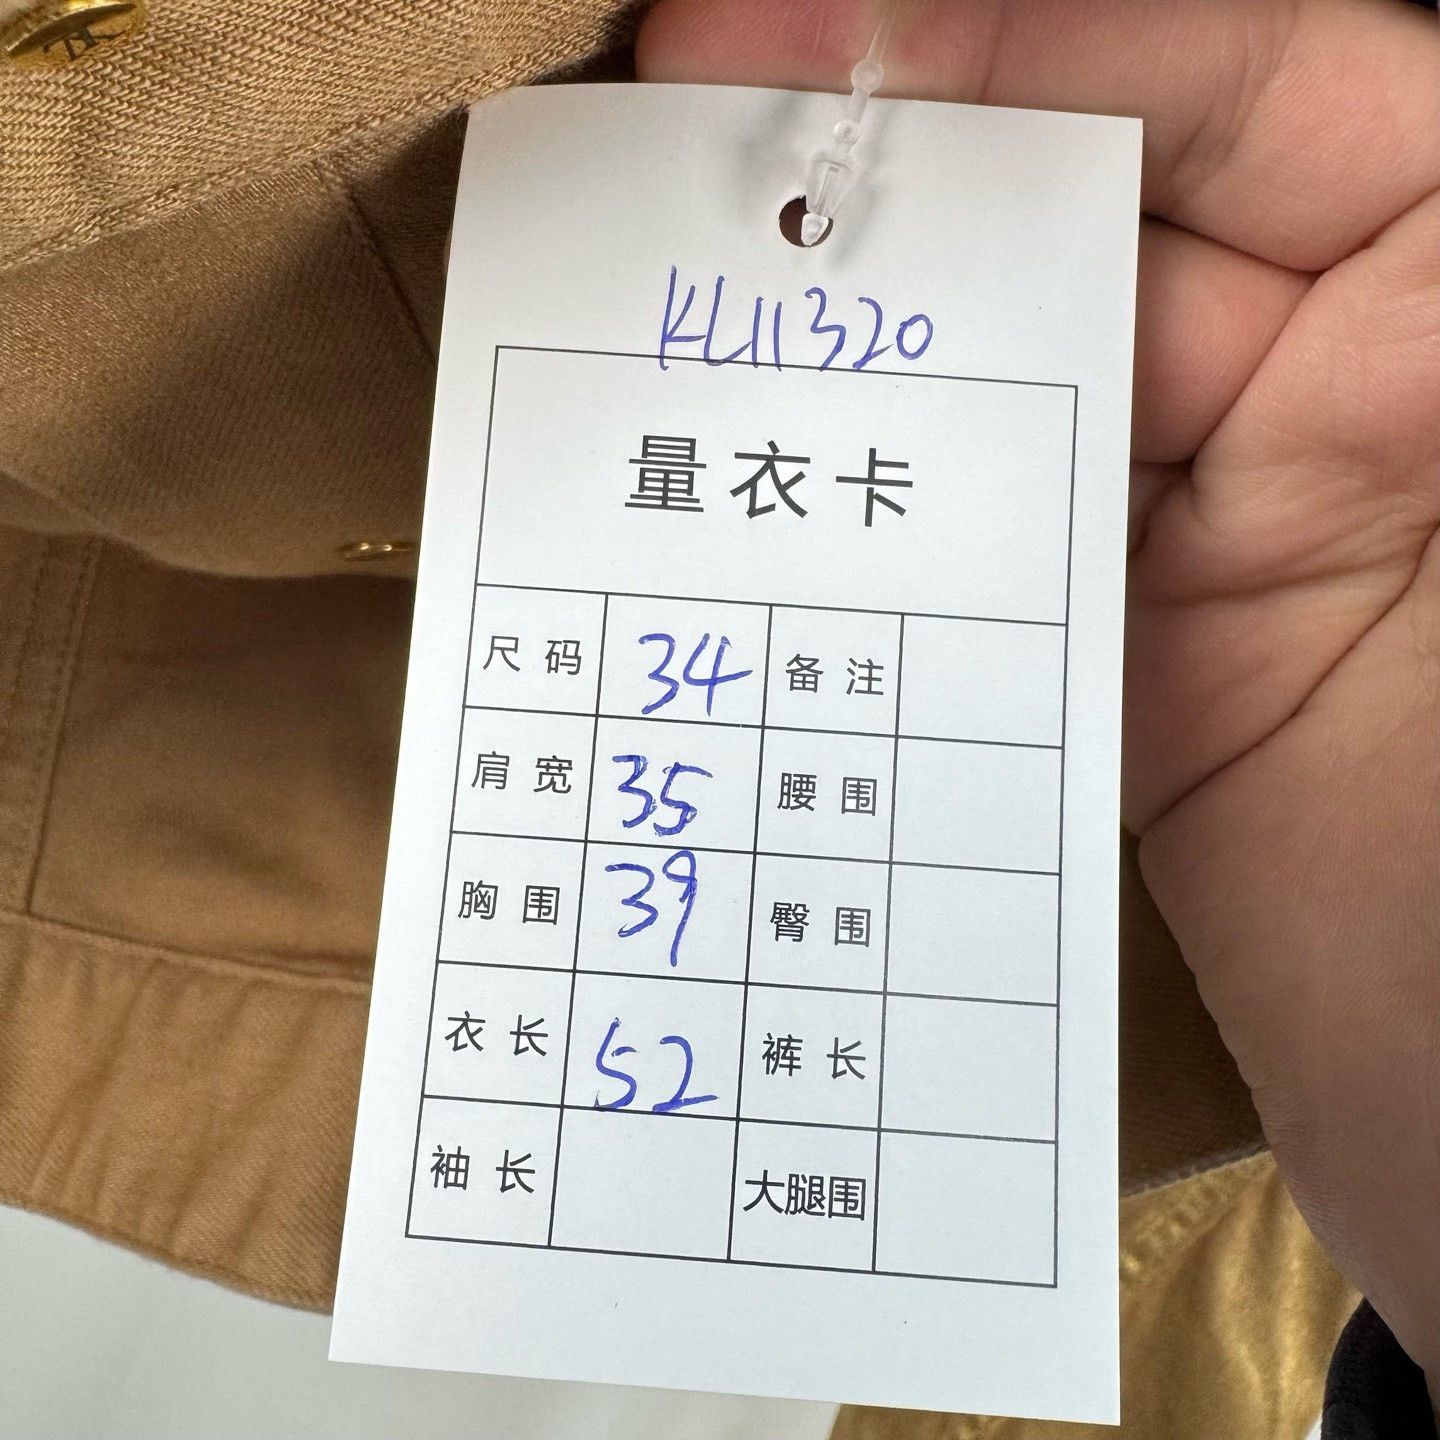 KL11320
量衣卡
尺码 34 备注
肩宽 35 腰围
胸围 39 臀围
衣长 52 裤长
袖长 大腿围